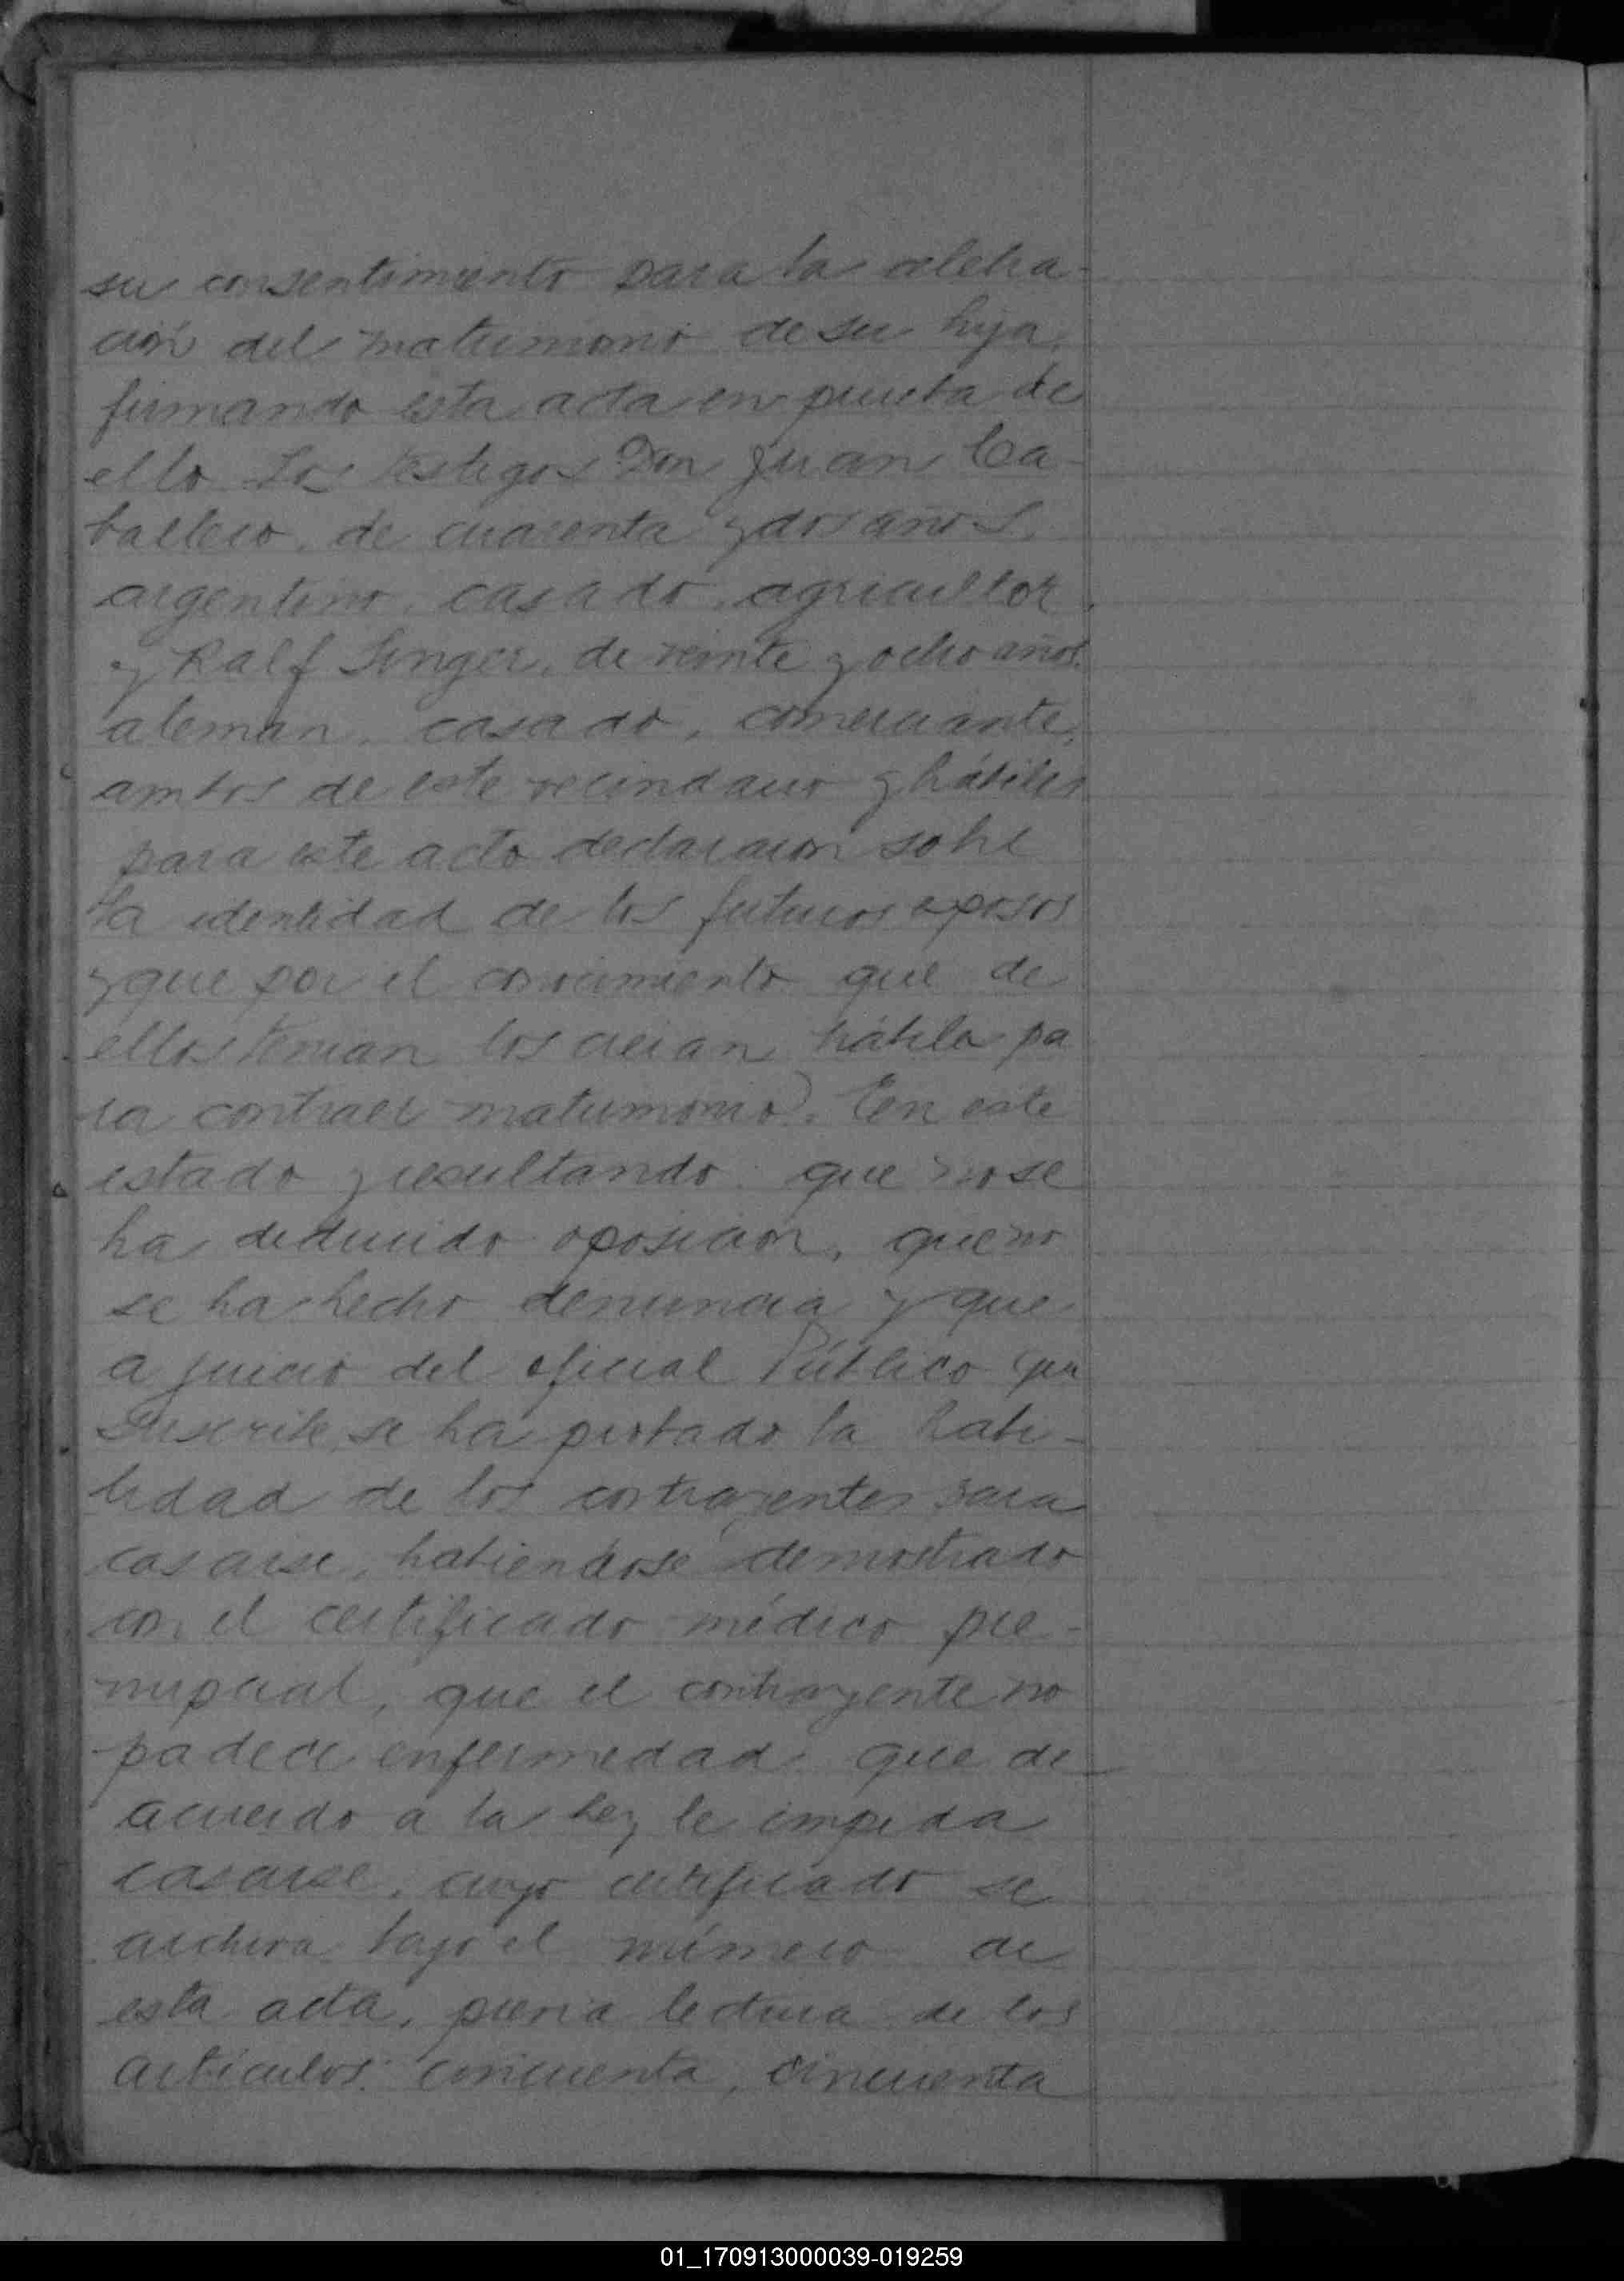 su consentimiento para la celebra-
ción del matrimonio de su hija,
firmando esta acta en prueba de
ello. Los testigos Don Juan Ca-
ballero, de cuarenta y dos años,
argentino, casado, agricultor,
y Ralf Singer, de veinte y ocho años,
alemán, casado, comerciante,
ambos de este vecindario y hábiles
para este acto declararon sobre
la identidad de los futuros esposos
y que por el conocimiento que de
ellos tenian los creian hábiles pa
ra contraer matrimonio. En este
estado y resultando que no se
ha deducido oposición, que no
se ha hecho denuncia y que
a juicio del oficial Público que
suscribe, se ha probado la habi-
lidad de los contrayentes para
casarse, habiendose demostrado
con el certificado médico pre-
nupcial, que el contrayente no
padece enfermedad que de
acuerdo a la ley le impida
casarse, cuyo certificado se
archiva bajo el número de
esta acta, previa lectura de los
artículos: cincuenta, cincuenta
01_170913000039-019259